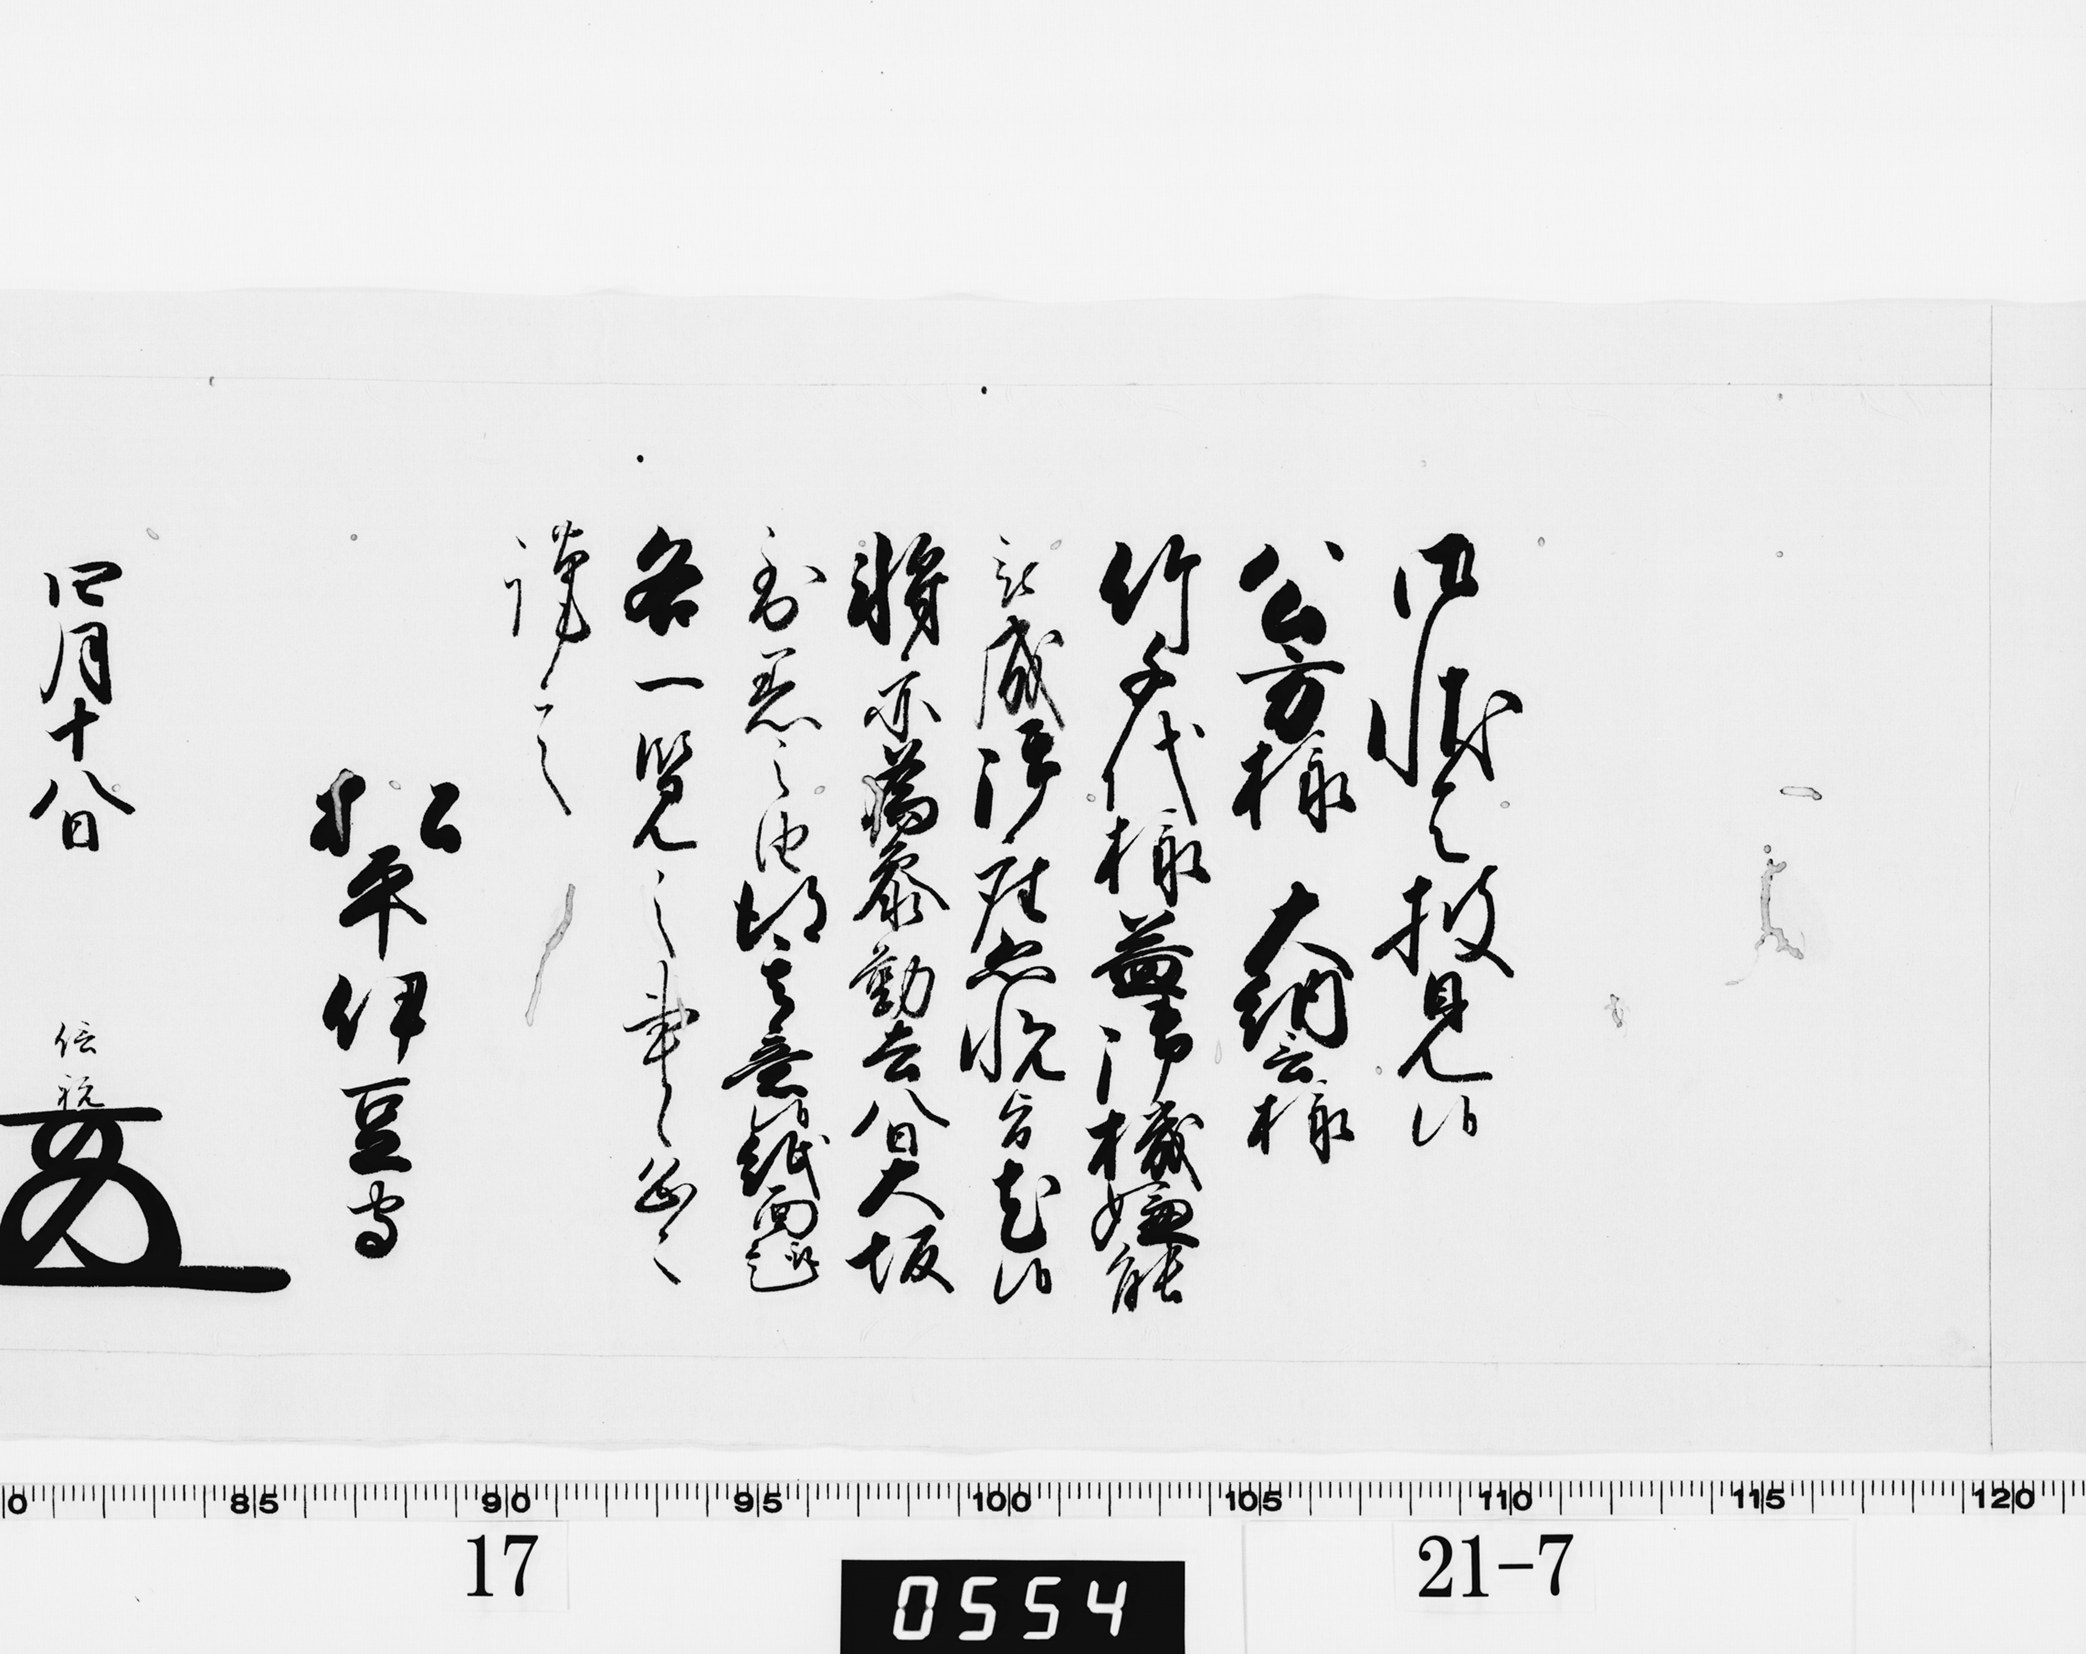 御状令披見候
公方様 大納言様
竹千代様益御機嫌能
被成御座恐悦旨尤候
将亦為参勤去八日大坂
到着之由得其意候紙面趣
各一覧之事候恐々
謹言
松平伊豆守
四月十八日 信祝
80 85 90 95 100 105 110 115 120
17
0554
21-7